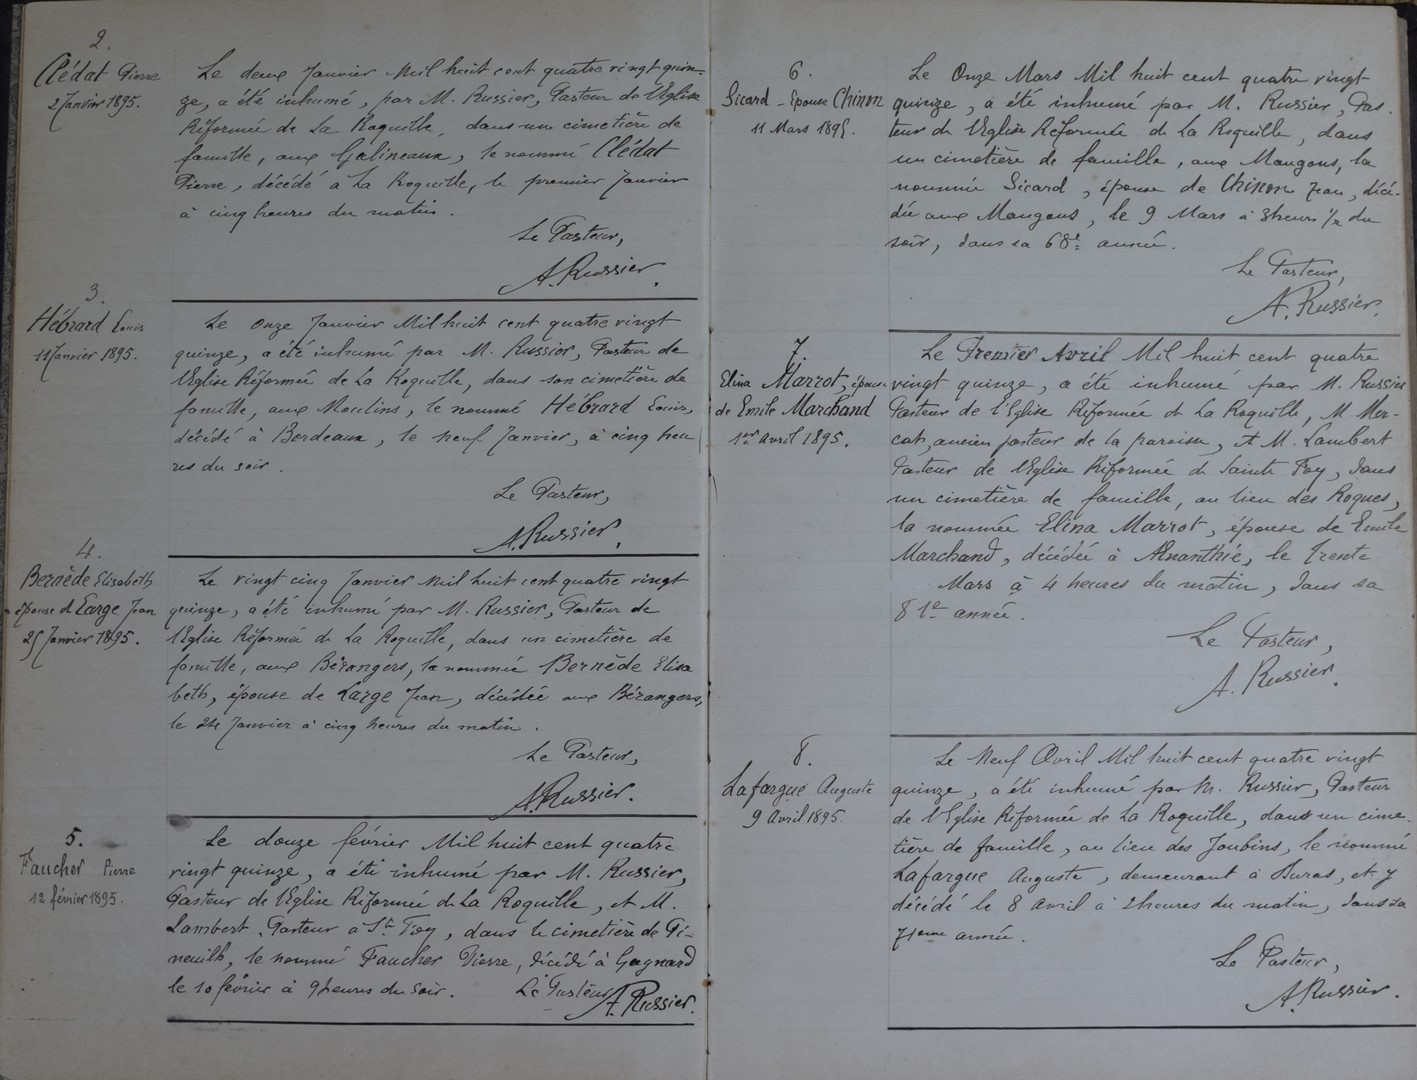 2.
Clédat Pierre
2 Janvier 1895.
Le deux Janvier Mil huit cent quatre vingt quin-
ze, a été inhumé, par M. Russier, Pasteur de l'Eglise
Réformée de La Roquille, dans un cimetière de
famille, aux Galineaux, le nommé Clédat
Pierre, décédé à La Roquille, le premier Janvier
à cinq heures du matin.
Le Pasteur,
A. Russier.
3.
Hébrard Louis
11 Janvier 1895.
Le onze Janvier Mil huit cent quatre vingt
quinze, a été inhumé par M. Russier, Pasteur de
l'Eglise Réformée de La Roquille, dans son cimetière de
famille, aux Moulins, le nommé Hébrard Louis,
décédé à Bordeaux, le neuf Janvier, à cinq heu
res du soir.
Le Pasteur,
A. Russier.
4.
Bernède Elisabeth
épouse d Large Jean
25 Janvier 1895.
Le vingt cinq Janvier Mil huit cent quatre vingt
quinze, a été inhumé par M. Russier, Pasteur de
l'Eglise Réformée de La Roquille, dans un cimetière de
famille, aux Bérangers, la nommée Bernède Elisa
beth, épouse de Large Jean, décédée aux Bérangers,
le 24 Janvier à cinq heures du matin.
Le Pasteur,
A. Russier.
5.
Faucher Pierre
12 février 1895.
Le douze février Mil huit cent quatre
vingt quinze, a été inhumé par M. Russier,
Pasteur de l'Eglise Réformée de La Roquille, et M.
Lambert, Pasteur à Ste Foy, dans le cimetière de Pi-
neuilh, le nommé Faucher Pierre, décédé à Gagnard
le 10 février à 9 heures du soir. Le Pasteur, A. Russier.
6.
Sicard - Epouse Chinon
11 Mars 1895.
Le Onze Mars Mil huit cent quatre vingt
quinze, a été inhumé par M. Russier, Pas-
teur de l'Eglise Réformée de La Roquille, dans
un cimetière de famille, aux Mangons, la
nommée Sicard, épouse de Chinon Jean, décé-
dée aux Mangons, le 9 Mars à 3 heures 1/2 du
soir, dans sa 68e année.
Le Pasteur,
A. Russier.
7.
Elina Marrot, épouse
de Emile Marchand
1er avril 1895.
Le Premier Avril Mil huit cent quatre
vingt quinze, a été inhumé par M. Russier
Pasteur de l'Eglise Réformée de La Roquille, M. Mer-
cat, ancien pasteur de la paroisse, et M. Lambert
Pasteur de l'Eglise Réformée de Sainte Foy, dans
un cimetière de famille, au lieu des Roques,
la nommée Elina Marrot, épouse de Emile
Marchand, décédée à le trente
Mars à 4 heures du matin, dans sa
81e année.
Le Pasteur,
A. Russier.
8.
Lafargue Auguste
9 Avril 1895.
Le Neuf Avril Mil huit cent quatre vingt
quinze, a été inhumé par M. Russier, Pasteur
de l'Eglise Réformée de La Roquille, dans un cime-
tière de famille, au lieu des Joubins, le nommé
Lafargue Auguste, demeurant à Duras, et y
décédé le 8 Avril à 2 heures du matin, dans sa
71eme année.
Le Pasteur,
A. Russier.